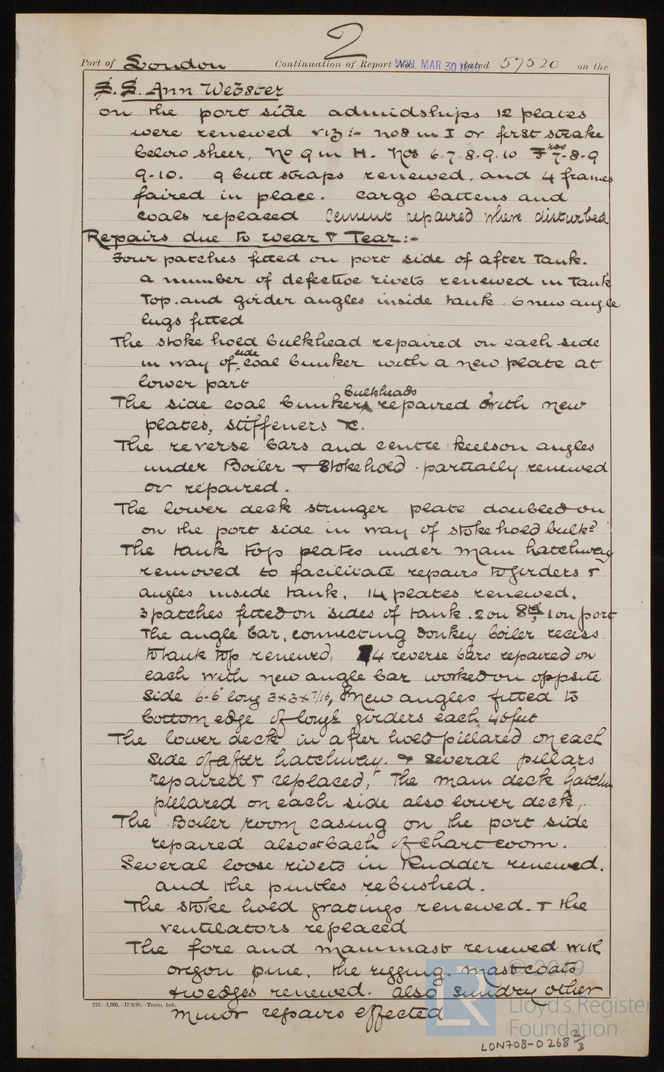 2
Port of London Continuation of Report No. MON. MAR 30 dated 57520 on the
S.S. Ann Webster
on the port side admidships 12 plates
were renewed viz:- nos in I or first strake
below sheer, No 9 in H. Nos 6.7.8.9.10 7-8-9
9.10. 9 butt straps renewed, and 4 frames
faired in place. cargo battens and
coals replaced Cement repaired where disturbed
Repairs due to wear & Tear:-
Four patches fitted on port side of after Tank.
a number of defective rivets renewed in Tank
Top. and girder angles inside tank. 6 new angle
lugs fitted
The stoke hold bulkhead repaired on each side
in way of side coal bunker with a new plate at
lower part
The side coal bunkers bulkheads repaired with new
plates, stiffeners &c.
The reverse bars and centre keelson angles
under Boiler & Stokehold partially renewed
or repaired.
The lower deck stringer plate doubled on
on the port side in way of stoke hold bulkd
The tank top plates under main hatchway
removed to facilitate repairs to girders &
angles inside tank, 14 plates renewed.
3 patches fitted on sides of tank. 2 on Std, 1 on port
The angle bar, connecting donkey boiler recess
to tank top renewed, 4 reverse bars repaired on
each with new angle bar worked on opposite
side 6-6 long 3x3x7/16, new angles fitted to
bottom edge of longl girders each 46 feet
The lower deck in after hold pillared on each
side of after hatchway. & several pillars
repaired & replaced, The main deck
pillared on each side also lower deck,.
The Boiler room casing on the port side
repaired also at back of chart room.
Several loose rivets in Rudder renewed.
and the pintles rebushed.
The stoke hold gratings renewed. & the
ventilators replaced
The fore and mainmast renewed with
oregon pine, the rigging, mastcoats
& wedges renewed. also sundry other
minor repairs effected
© 2019
LR
Lloyd's Register
Foundation
LON708-0268 2/3